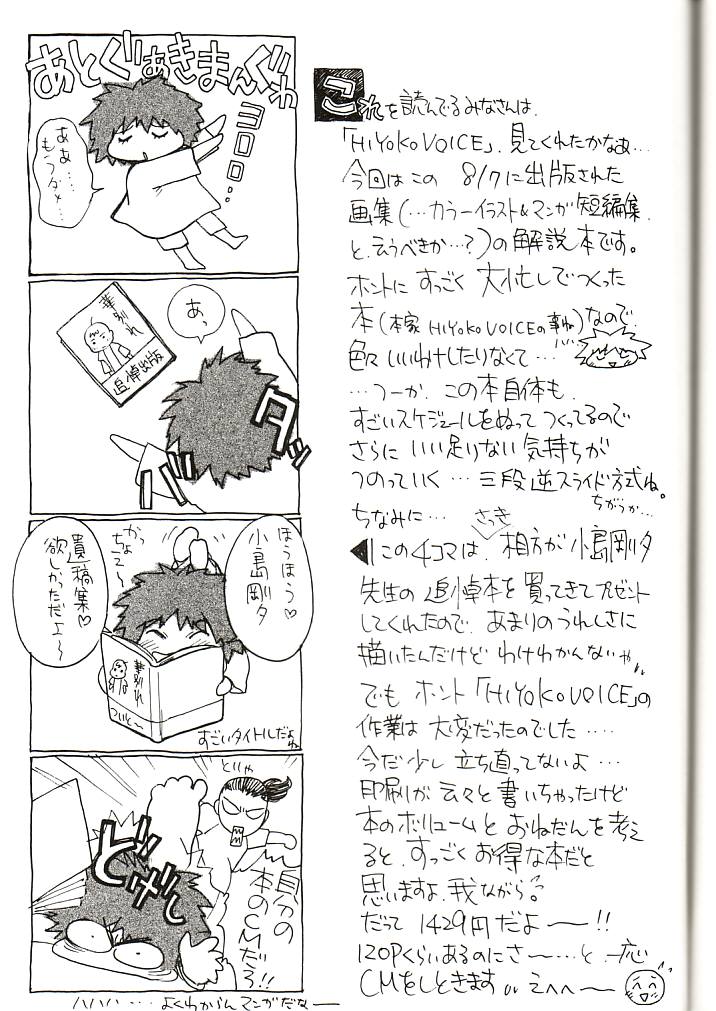 あとがきまんが
ヨロロ…
ああ…
もうダメ…
あっ
華別れ
追悼出版
バタッ
ほうほう♡
小島剛夕
かっちょえ〜
遺稿集♡
欲しかっただよ〜
華別れ
すごいタイトルだよね
どいや
どげし
自分の
本のCMだろ!!
ハハハ…よくわからんマンガだなー
これを読んでるみなさんは、
「HIYOKO VOICE」、見てくれたかなぁ…
今回はこの 8/7に出版された
画集(…カラーイラスト&マンガ短編集、
と、云うべきか…?)の解説本です。
ホントに すっごく 大忙しでつくった
本(本家 HIYOKO VOICEの事ね)なので、
色々 いいわけしたりなくて…
…つーか、この本自体も、
すごいスケジュールをぬって つくってるので
さらに いい足りない 気持ちが
つのっていく… 三段逆スライド方式ね。
ちがうか…
ちなみに… さっき
◀この4コマは、相方が 小島剛夕
先生の 追悼本を 買ってきて プレゼント
してくれたので、あまりの うれしさに
描いたんだけど わけわかんないや
でも ホント「HIYOKO VOICE」の
作業は 大変だったのでした…
今だ少し 立ち直ってないよ…
印刷が 云々と 書いちゃったけど
本のボリュームと おねだんを 考え
ると、すっごく お得な本だと
思いますよ、我ながら。
だって 1429円だよ〜!!
120Pくらいあるのにさ〜…と、一応
CMをしときます えへへ〜